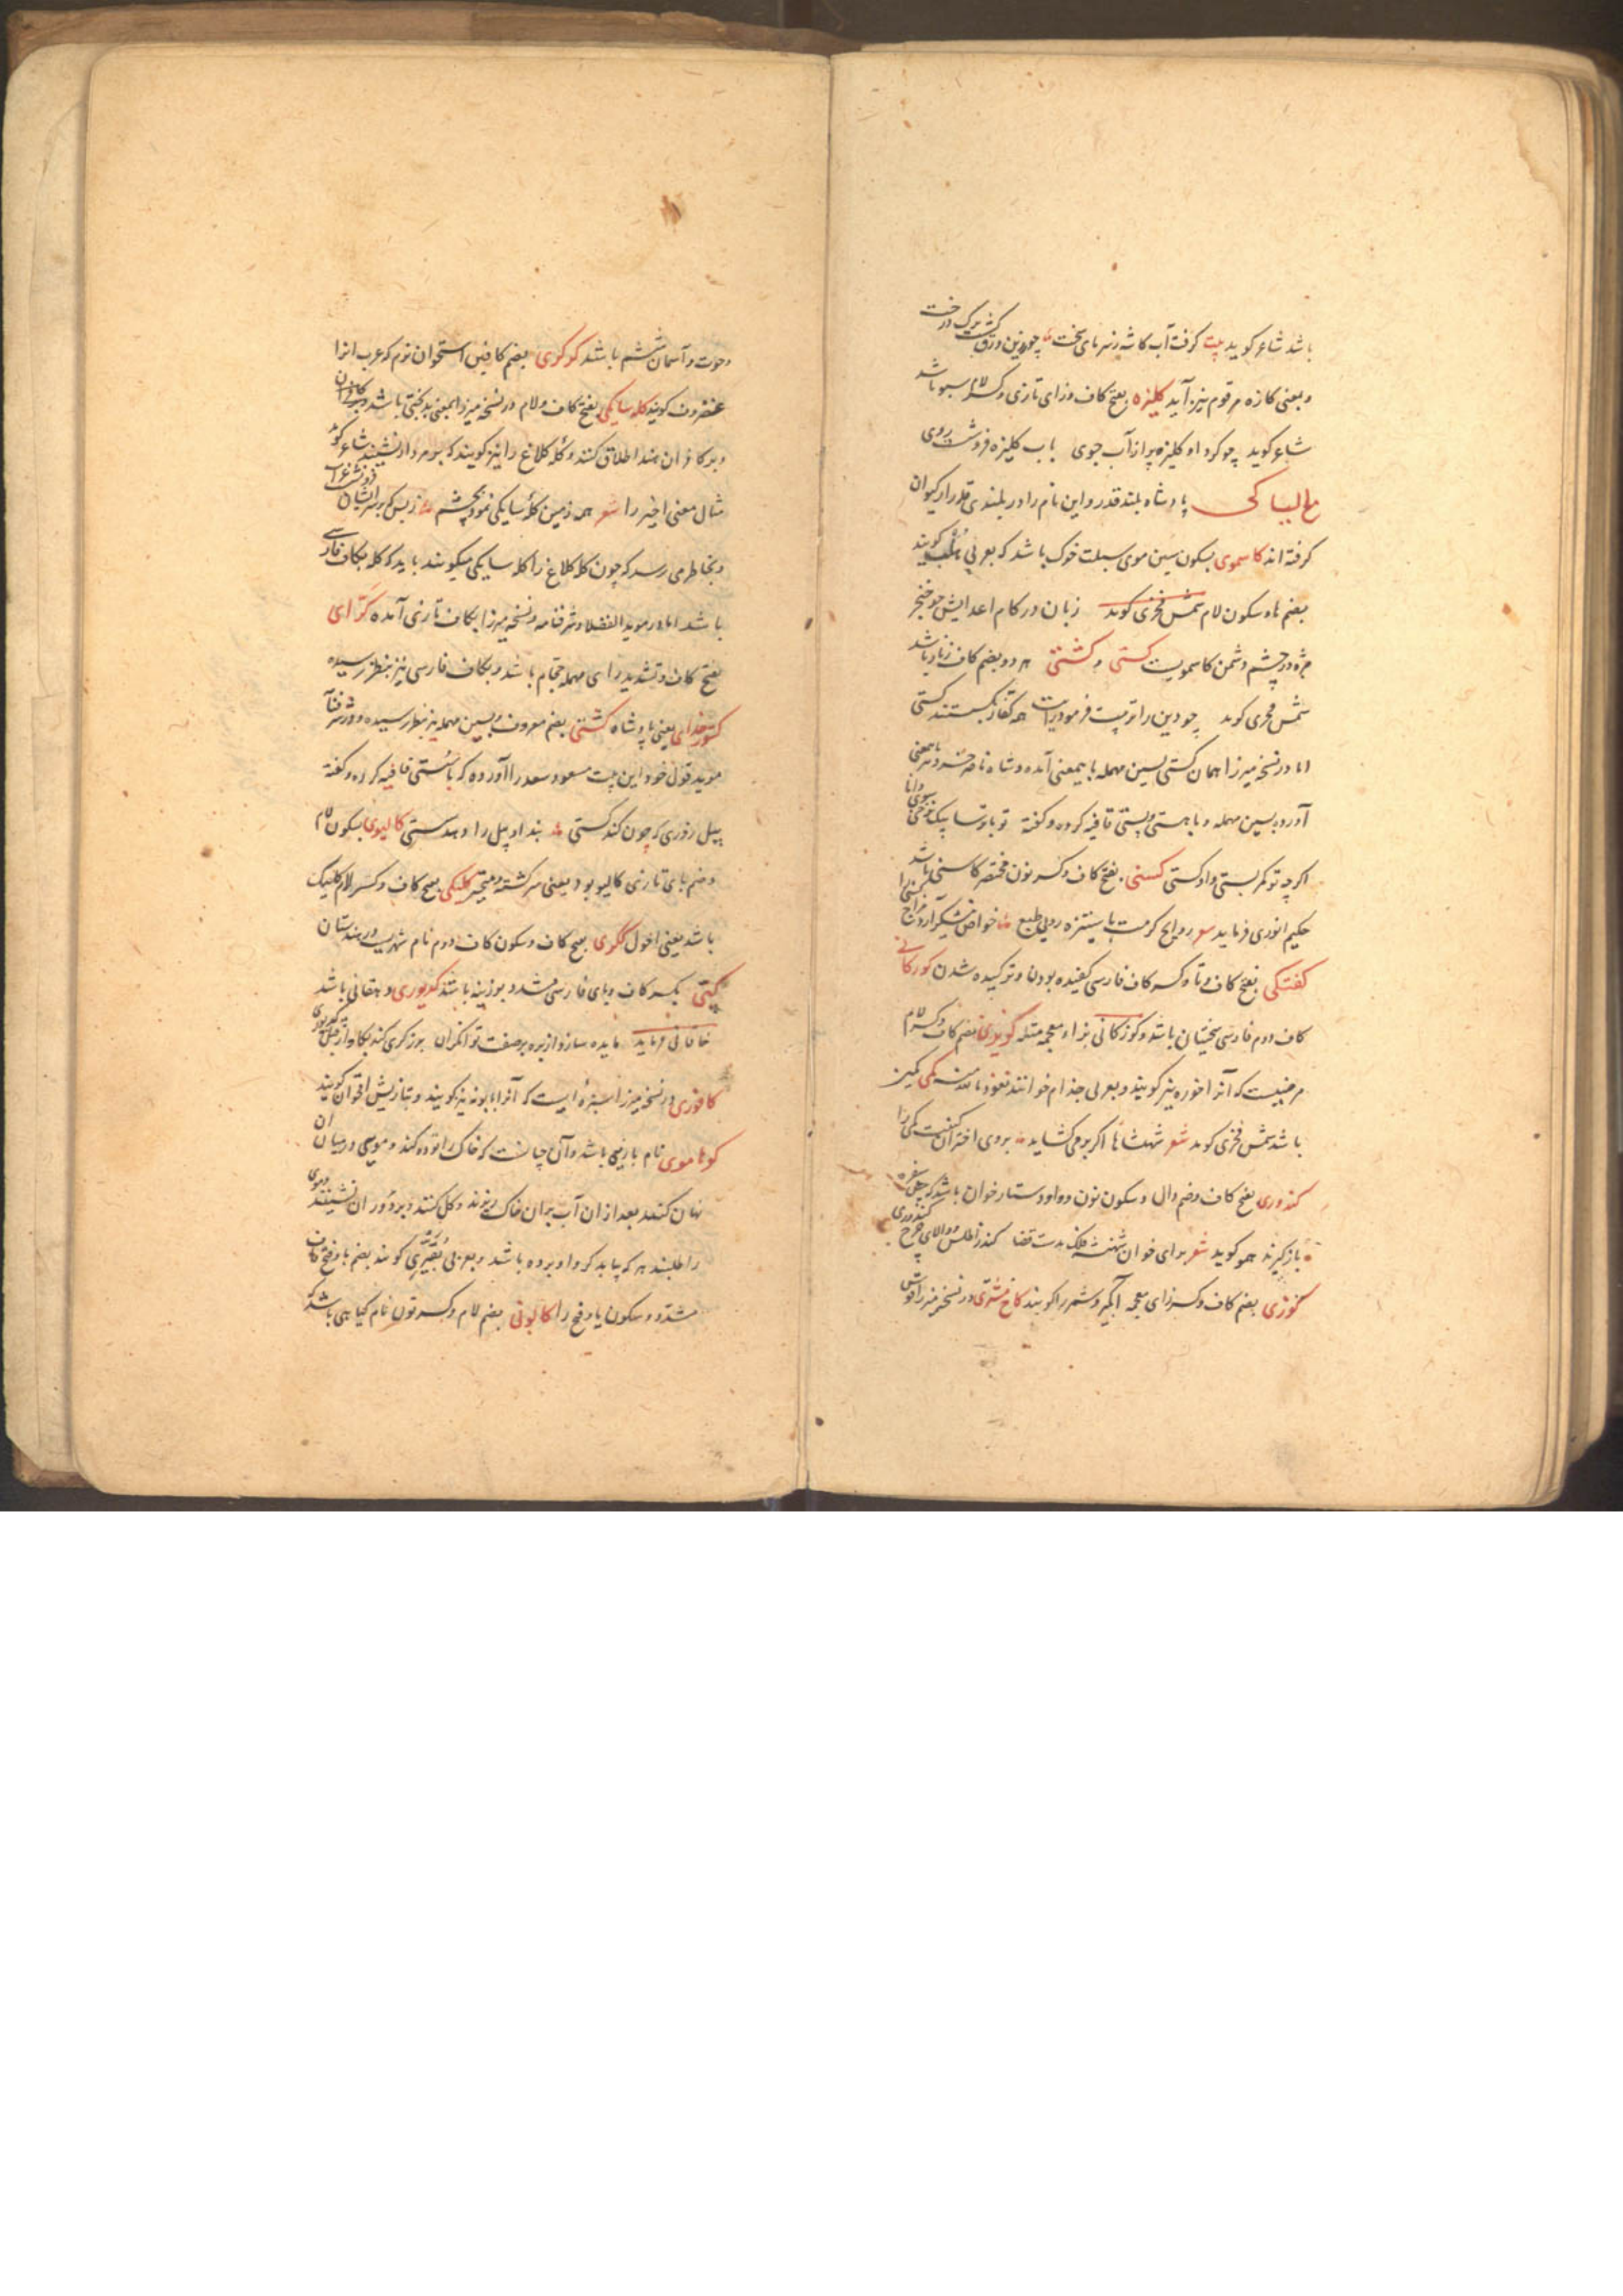 باشد شاعر کوید بیت کرفت آب کاشه ز سرمای سخت چو زرین ورق کشت برک درخت
و بمعنی کازه مرقوم نیز آید کلیزه بفتح کاف و زای تازی و کسر لام سبو باشد
شاعر کوید چو کرد او کلیزه پر از آب جوی باب کلیزه فروشست روی
مع الیا کی پادشاه بلند قدر و این نام را در بلندی قدر از کیوان
کرفته اند کاسموی بسکون سین موی سبلت خوک باشد که بعربی هلب کویند
بضم ها و سکون لام شمس فخری کوید زبان در کام اعدایش چو خنجر
مژه در چشم دشمن کاسمویست کستی و کشتی هر دو بضم کاف زنار باشد
شمس فخری کوید چو دین را تربیت فرمود رایت همه کفار بکسستند کستی
اما در نسخه میرزا همان کستی بسین مهمله باینمعنی آمده و شاه ناصر خسرو نیز بهمین معنی
آورده بسین مهمله و با هستی و پستی قافیه کرده و کفته تو با ترسا بیک نرخی سوی دانا
اکر چه تو کمر بستی و او کستی کسنی بفتح کاف و کسر نون مختصر کاسنی باشد
حکیم انوری فرماید
کفتکی بفتح کاف و تا و کسر کاف فارسی کفیده بودن و ترکیده شدن کورکانی
کاف دوم فارسی سختیان باشد و کوزکانی بزاء معجمه مثله بضم کاف و کسر لام
مرضیست که آنرا خوره نیز کویند و بعربی جذام خوانند نعوذ بالله منه کمی کمیز
باشد شمس فخری کوید شعر شهنشاها اکر برمی کشاید بروی اختران
کندوری بفتح کاف و ضم دال و سکون نون و واو دستار خوان باشد که سفره
باز کیرند همو کوید شعر برای خوان شهنشه فلک بدست قضا کند ز اطلس والای چرخ کندوری
کوزی بضم کاف و کسر زای معجمه آبکیر و شمر را کویند کاخ مشتری در نسخه میرزا قوس
و حوت و آسمان ششم باشد کوکوی بضم کافین استخوان نرم که عرب انرا
غضروف کویند کله سایکی بفتح کاف و لام در نسخه میرزا بمعنی بدبختی باشد و کافران
و بر کافران هند اطلاق کنند و کله کلاغ را نیز کویند که بر مردار نشینند شاعر کوید
مثال معنی اخیر را شعر همه زمین کله سایکی نمود بچشم ز بس که بر سر ایشان
و بخاطر می رسد که چون کله کلاغ را کله سایکی میکویند باید که کله بکاف فارسی
باشد اما در موید الفضلا و شرفنامه و نسخه میرزا بکاف تازی آمده کرای
بفتح کاف و تشدید رای مهمله حجام باشد و بکاف فارسی نیز بنظر رسیده
کشورخدای یعنی پادشاه کشتی بضم معروف و بسین مهمله نیز بنظر رسیده و در شرفنامه
موید قول خود این بیت مسعود سعد را آورده که با سستی قافیه کرده و کفته
پیل زوری که چون کند کستی بند او پیل را دهد سستی کالیوی بسکون لام
و ضم یای تازی کالیو بود یعنی سرکشته و متحیر کلیکی بفتح کاف و کسر لام کلیک
باشد یعنی احول ککری بفتح کاف و سکون کاف دوم نام شهریست در هندستان
کپی بکسر کاف و بای فارسی مشدد بوزینه باشد کدیوری دهقانی باشد
خاقانی فرماید مایده سازد از بره بر صفت توانکران بزرکری کند بکاو از قبل کدیوری
کافوری در نسخه میرزا سبزه ایست که آنرا بابونه نیز کویند و بتازیش اقحوان کویند
کوهاموی نام بازیی باشد و آن چنانست که خاک را توده کند و مویی در میان ان
نهان کنند بعد از ان آب بران خاک ریزند و کل کنند و بر دور ان نشینند و موی
را طلبند هر که بیابد کرو او برده باشد و بعربی بقیری کویند بضم با و فتح قاف
مشدد و سکون یا و فتح را کالونی بضم لام و کسر نون نام کیاهی باشد که